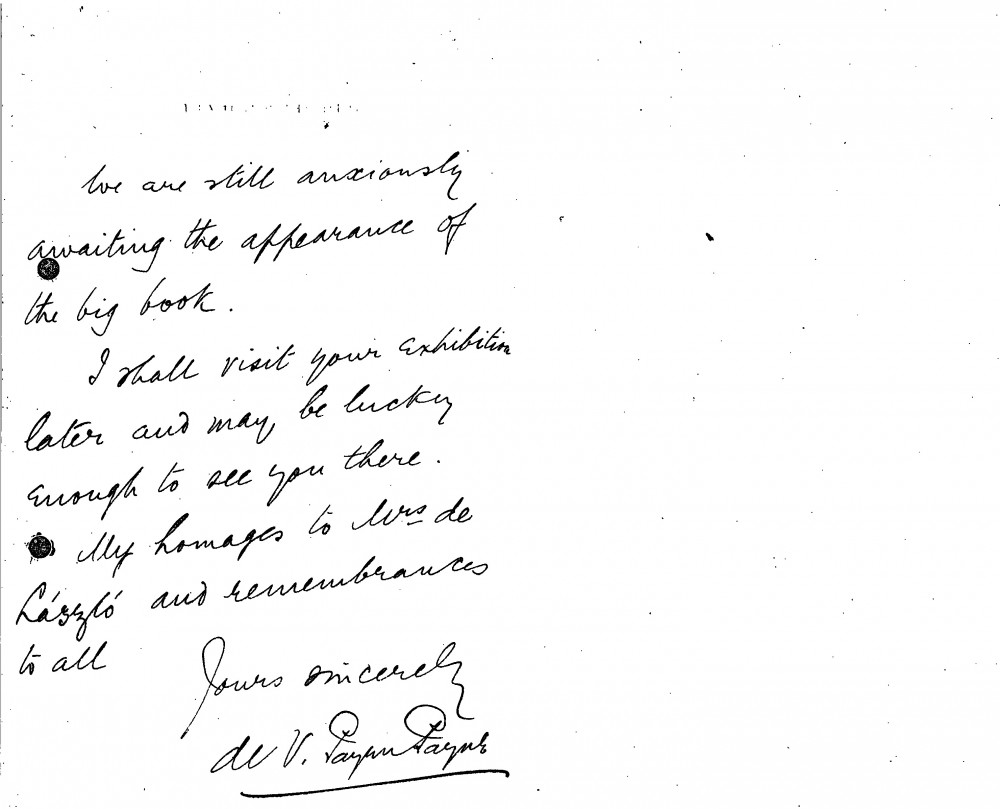 We are still anxiously
awaiting the appearance of
the big book.
I shall visit your Exhibition
later and may be lucky
enough to see you there.
My homages to Mrs de
László and remembrances
to all
Yours sincerely
de V. Payen Payne